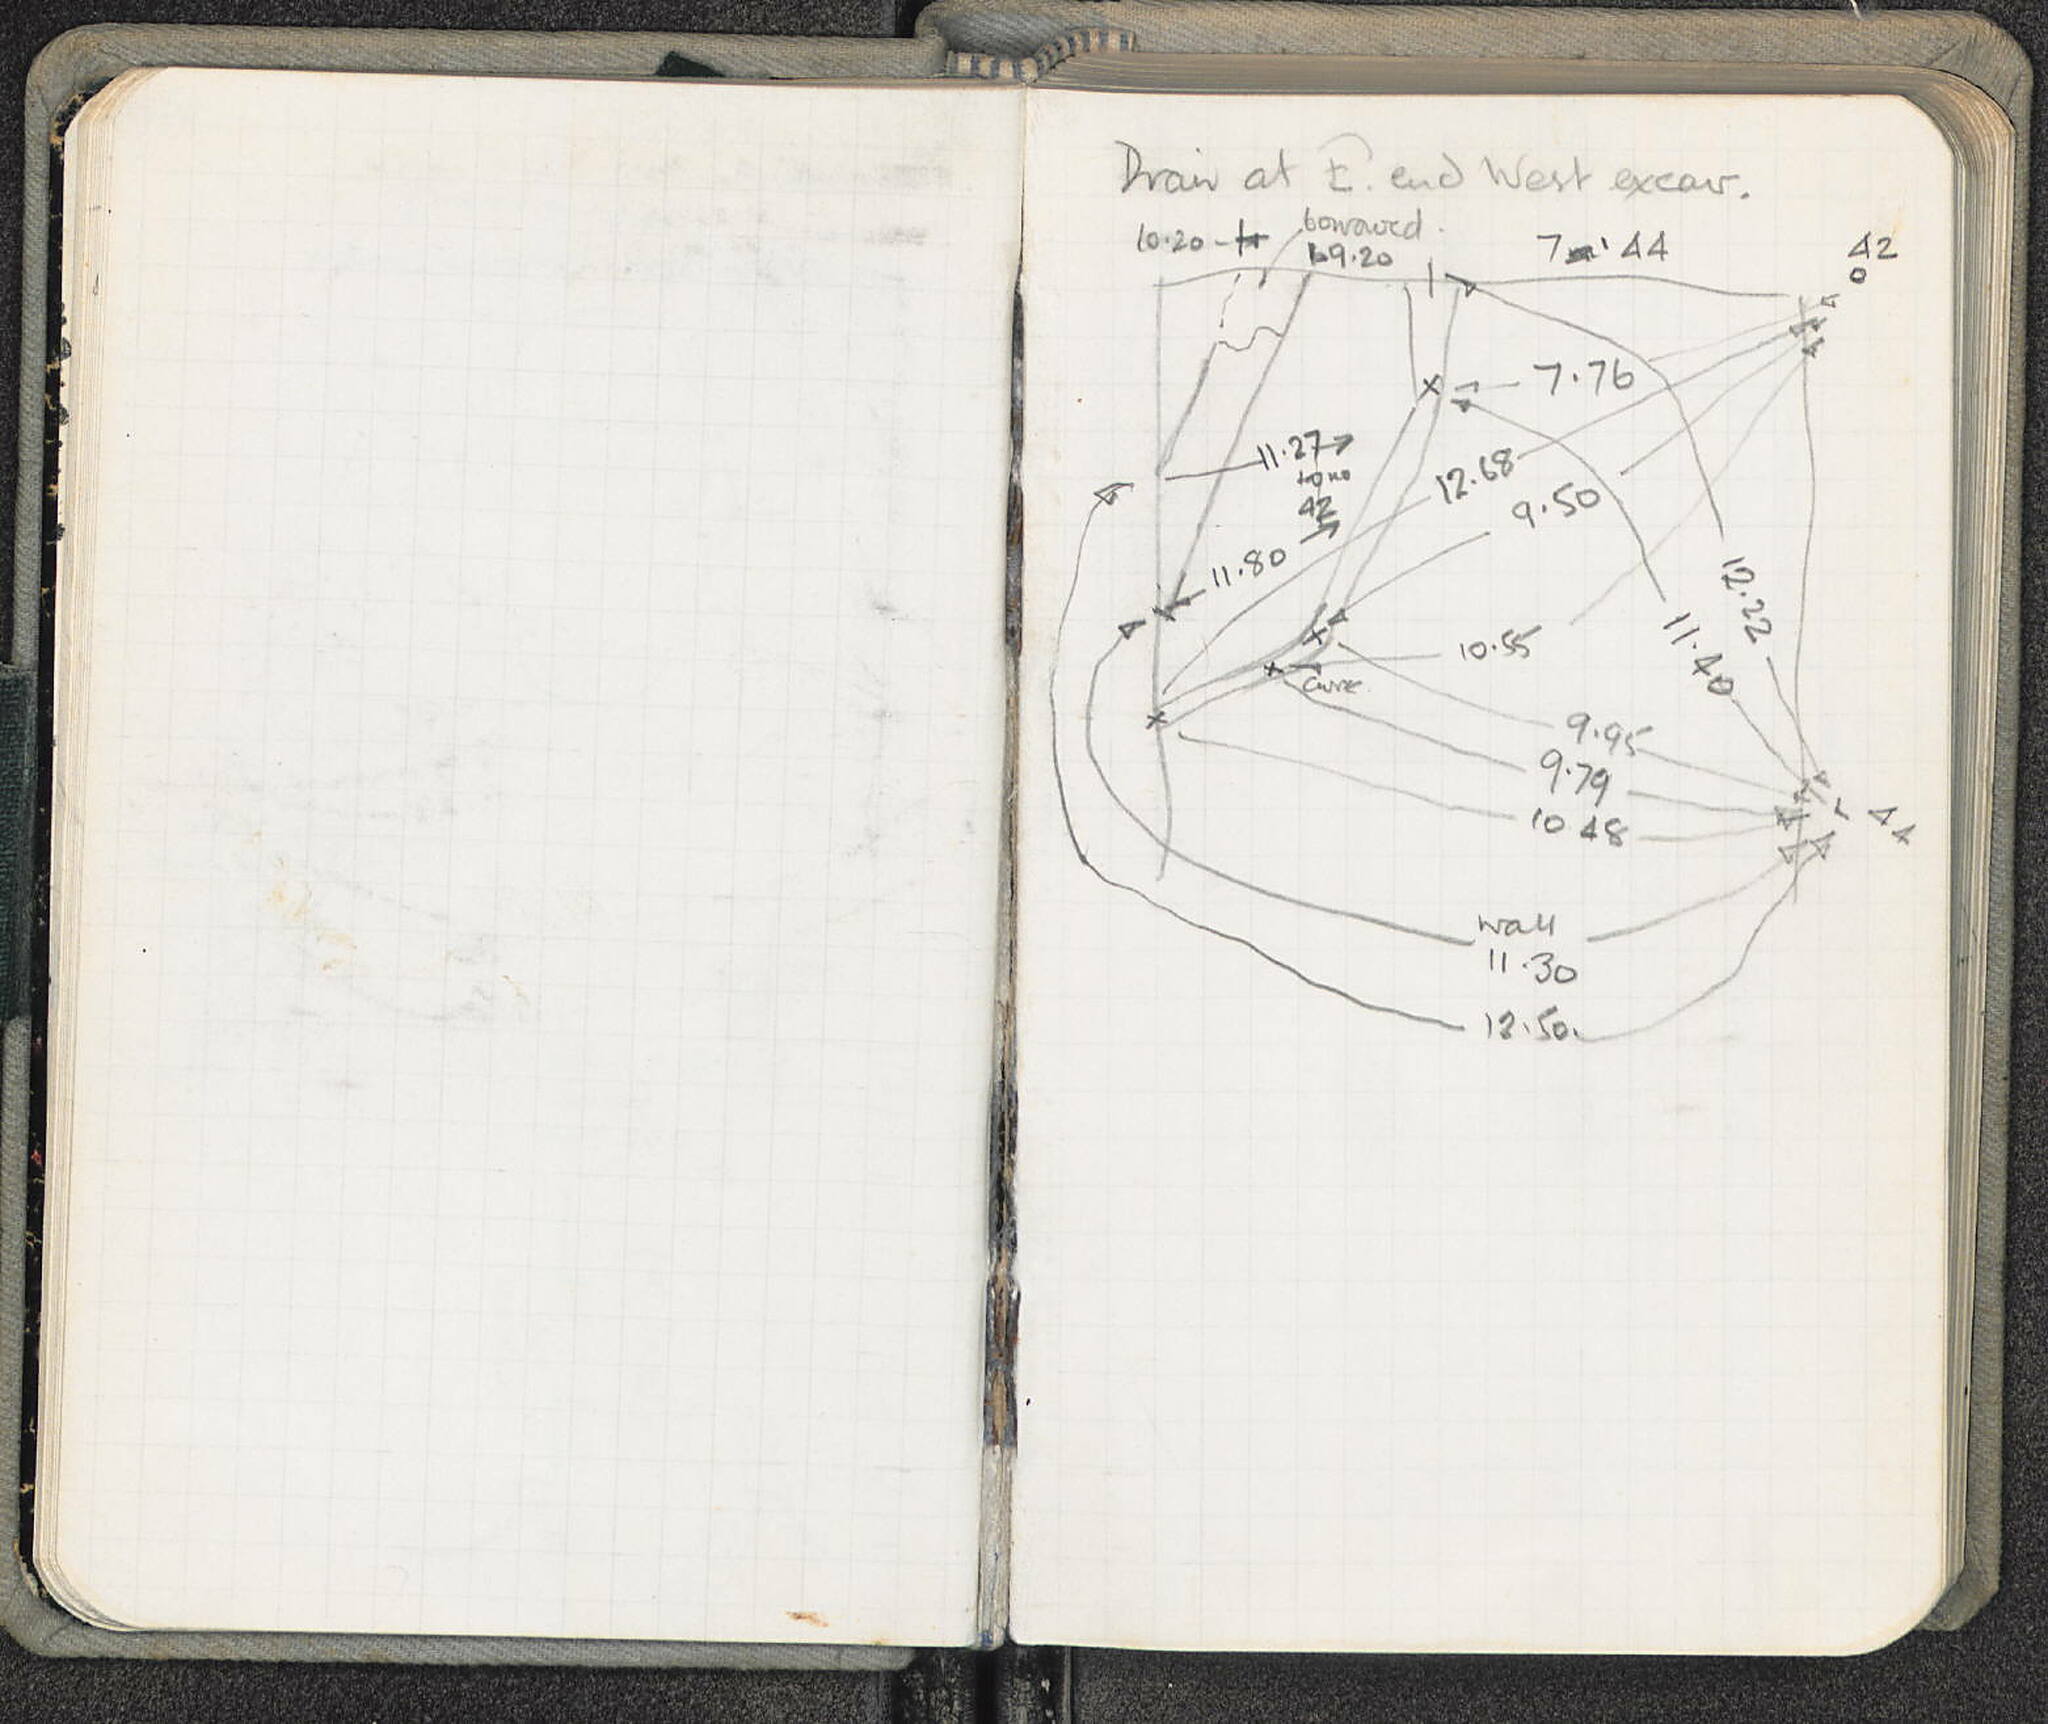 Drain at E. end West excav.
10.20
9.20
7 ' 44
42
0
7.76
11.27
to no
42
12.68
9.50
11.80
12.22
11.40
10.55
Curve
9.95
9.79
10 48
44
Wall
11.30